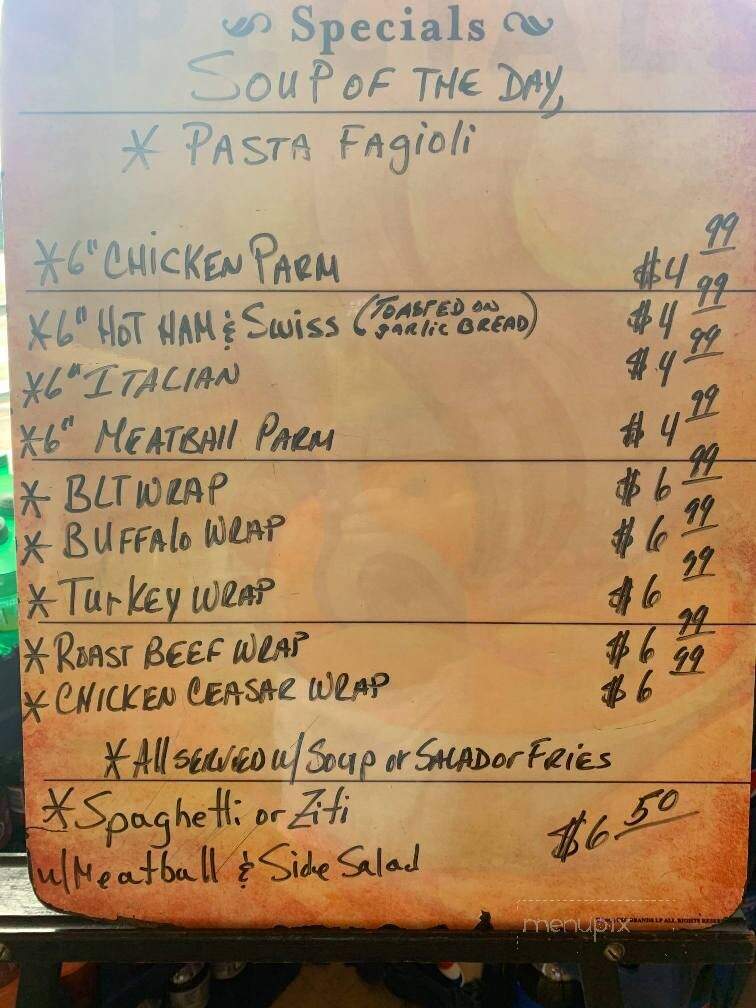 Specials
SOUP OF THE DAY,
* PASTA FAgioli
*6" CHiCKEN PARM $4 99
*6" HOT HAM & Swiss (TOASTED ON garlic BREAD) $4 99
*6" ITALIAN $4 99
*6" MEATBAll PARM $4 99
* BLT WRAP $6 99
* BUFFAlo WRAP $6 99
* TurKEY WRAP $6 99
* ROAST BEEF WRAP $6 99
* CHICKEN CEASAR WRAP $6 99
* All SERVED w/ Soup or SALAD or FRIES
* Spaghetti or Ziti
w/ Meatball & Side Salad $6 50
menupix
BRANDS LP ALL RIGHTS RESER